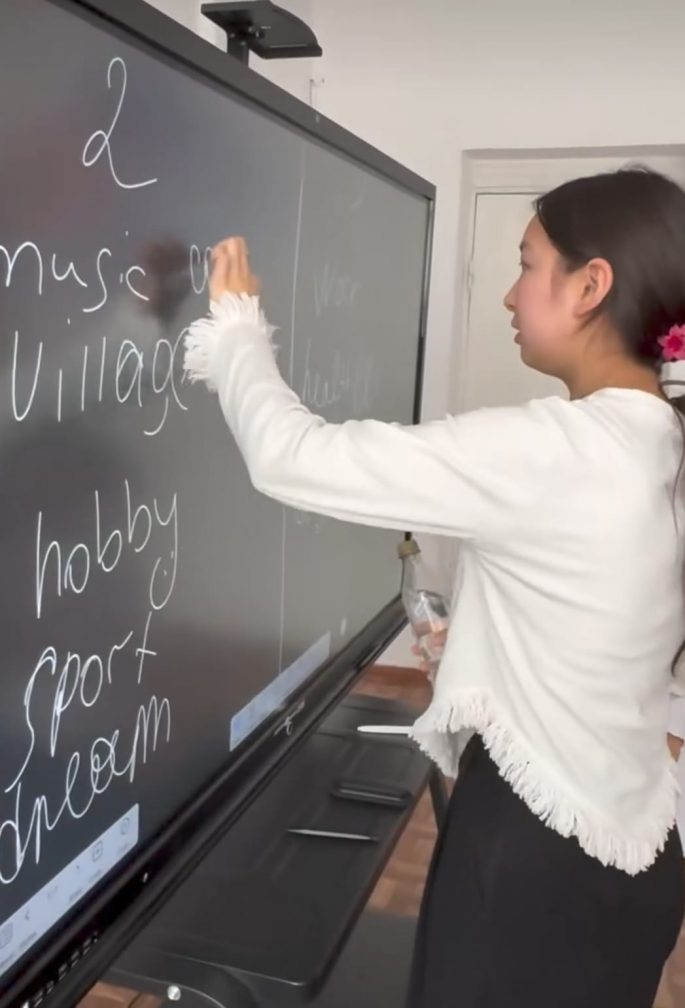 2
music
village
hobby
sport
dream